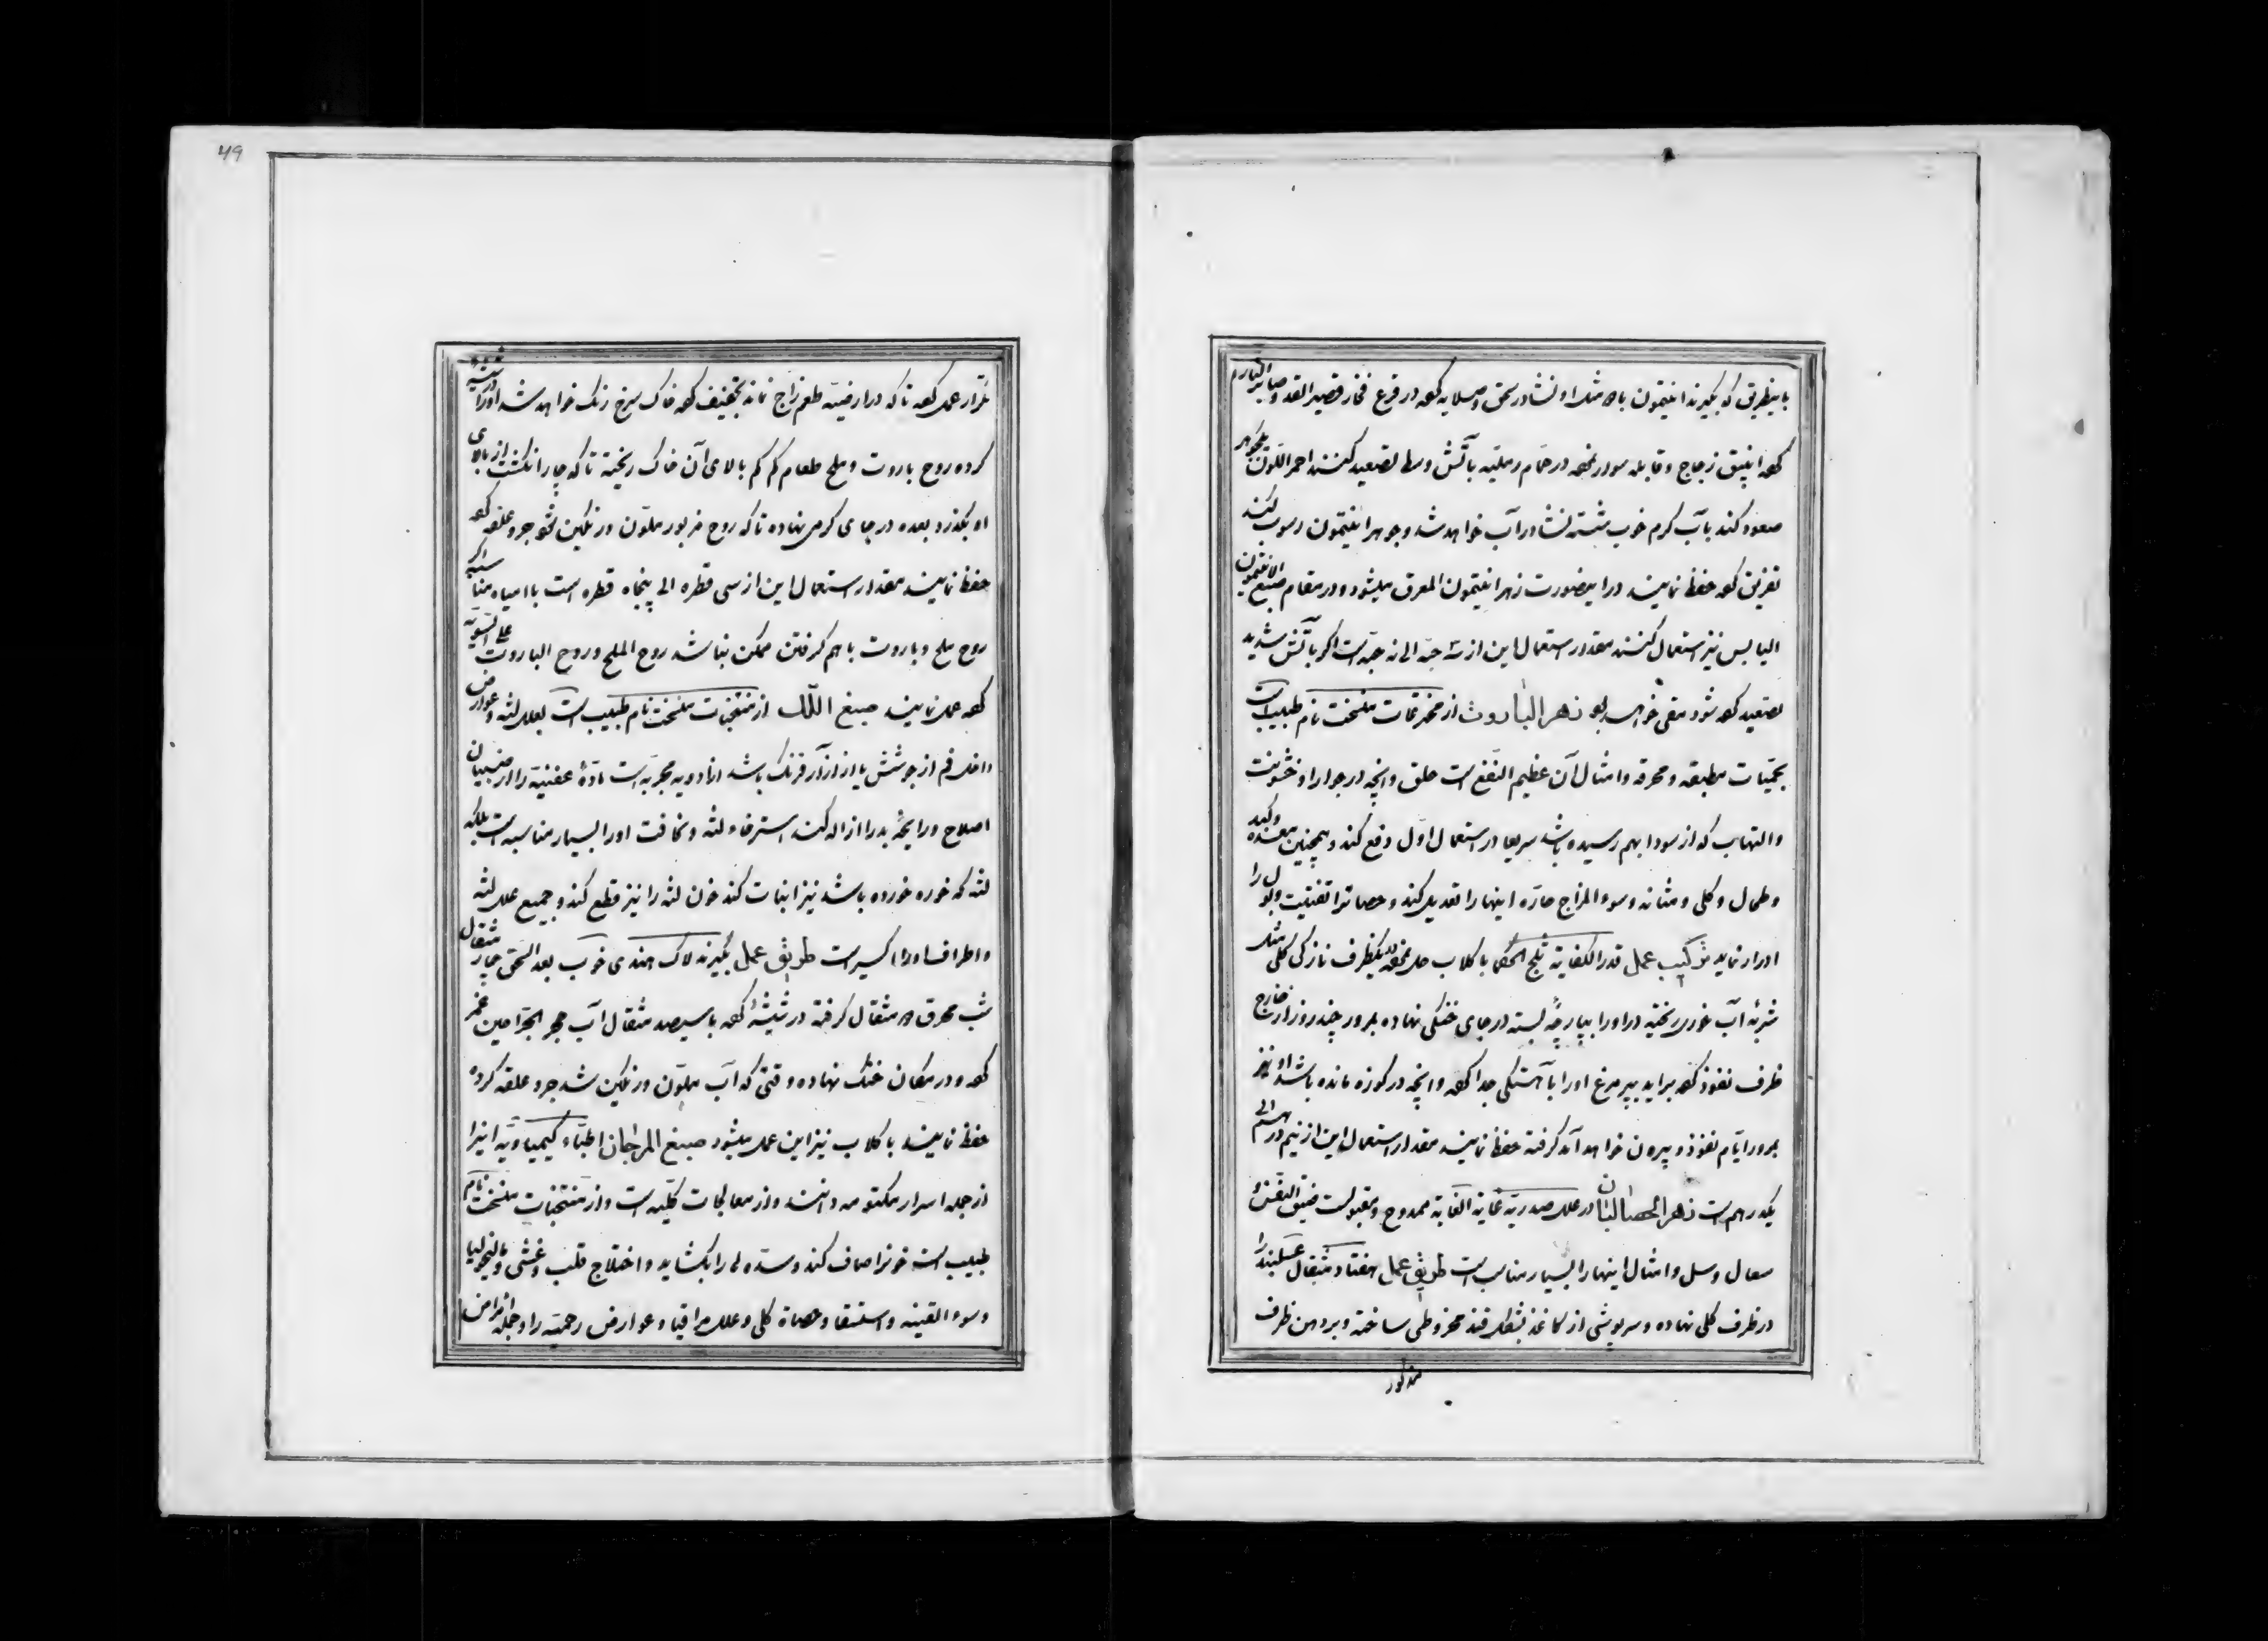 باینطریق که بگیرند انتیمون با ده مثل او نشادر سحق و صلایه کعه در قرع فخار قصیر القد و صابر النارم
کعه انبیق زجاج و قابله مودر نمعه در حمام رملیه بآتش وسط تصعید کنند احمر اللون جوهر
صعود کند بآب کرم خوب شسته نشادر آب خواهد شد و جوهر انتیمون رسوب کند
تفریق کعه حفظ نمایند در اینصورت زهر انتیمون المعرق میشود و در مقام صبغ الانتیمون
الیابس نیز استعمال کنند مقدار استعمال این از سه حبه الی نه حبه است اکر بآتش شدید
تصعید کعه شود مقی خواهد بود زهر البارود از مخترعات منتخت نام طبیب است
بحمیات مطبقه و محرقه و امثال آن عظیم النفع است حلق و آنچه در جوار او خشونت
و التهاب که از سودا بهم رسیده باشد سریعا در استعمال اول دفع کند و همچنین معده و کبد
و طحال و کلی و مثانه و سوء المزاج حاره اینها را تعدیل کند و حصاترا تفتیت و بول را
ادرار نماید ترکیب عمل قدر الکفایه ثلج الحکما با کلاب حل نمعه بیکظرف نازکی کلی مثل
شربه آب خوری ریخته در اورا بپارچه بسته در جای خنکی نهاده بمرور چند روز از خارج
ظرف نفوذ کعه براید بپر مرغ اورا باهستکی جدا کعه و آنچه در کوزه مانده باشد او نیز
بمرور ایام نفوذ و بیرون خواهد آمد کرفته حفظ نمایند مقدار استعمال این از نیم درهم الی
یکدرهم است زهر الحصالبان در علل صدریه غایة الغایه ممدوح و مقبولست ضیق النفس و
سعال و سل و امثال اینها را بسیار مناسب است طریق عمل هفتاد مثقال عسلبند را
در ظرف کلی نهاده و سرپوشی از کاغذ بشکل قند مخروطی ساخته و بردهن ظرف
مذکور
49
تکرار عمل کعه تا که در ارضیه طعم زاج نماند تجفیف کعه خاک سرخ رنک خواهد شد اورا در شیشه
کرده روح باروت و ملح طعام کم کم بالای آن خاک ریخته تا که چار انکشت از بالای
او بکذرد بعده در جای کرمی نهاده تا که روح مزبور ملون و رنکین شود جر و علقه کعه
حفظ نمایند مقدار استعمال این از سی قطره الی پنجاه قطره است با میاه مناسبه اکر
روح ملح و باروت باهم کرفتن ممکن نباشد روح الملح و روح الباروت علی السویه
کعه عمل نمایند صبغ اللک از منتخبات منتخت نام طبیب است بعلل لثه و عوارض
داخل فم از جوشش یا از آزار فرنک باشد از ادویه مجربه است مادۀ عفنیه را از صبیان
اصلاح و رایحۀ بد را ازاله کند استرخاء لثه و نخافت اورا بسیار مناسب است بلکه
لثه که خوره خورده باشد نیز انبات کند خون لثه را نیز قطع کند و جمیع علل لثه
و اطراف اورا اکسیر است طریق عمل بکیرند لاک هندی خوب بعد السحق چار مثقال
شب محرق ده مثقال کرفته در شیشۀ کعه با سیصد مثقال آب حجر الجراحین غمر
کعه و در مکان خنک نهاده وقتی که آب ملون و رنکین شد جر و علقه کرده
حفظ نمایند با کلاب نیز این عمل میشود صبغ المرجان اطباء کیمیاویه اینرا
از جمله اسرار مکتومه دانند و از معالجات کلیه است و از منتخبات منتخت نام
طبیب است خونرا صاف کند و سده لی را بکشاید و اختلاج قلب و غشی و مالیخولیا
و سوء القنیه و استسقا و حصاة کلی و علل مراقیا و عوارض رحمیه را و جمله امراض